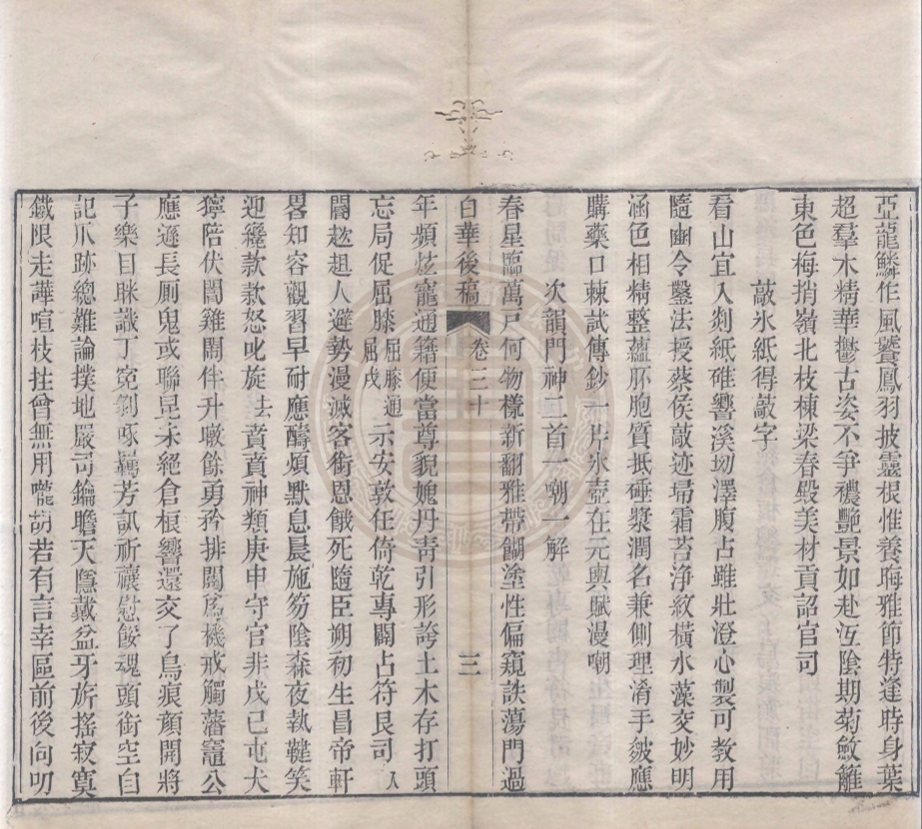 亞龍鱗作風饕鳳羽披靈根惟養晦雅節特逢時身葉
超羣木精華鬱古姿不爭禮艷景如赴沍陰期菊斂籬
東色梅捎嶺北枝棟梁春毀美材貢詔官司
敲氷紙得敲字
看山宜入剡紙碓響溪坳澤腹占雖壯澄心製可教用
隨幽令鑿法授蔡侯敲迹埽霜苔浄紋橫水藻交妙明
涵色相精整蘊胚胞質抵硾漿潤名兼側理淆手皴應
購藥口棘試傳鈔一片氷壺在元輿賦漫嘲
次韻門神二首一嘲一解
春星臨萬戸何物樣新翻雅帶餬塗性偏窺訣蕩門過
白華後稿 卷三十 三
年頻炫寵通籍便當尊貌媿丹靑引形誇土木存打頭
忘局促屈膝屈膝通屈戌示安敦任倚乾專闢占符艮司入
闇趑趄人遊勢漫滅客銜恩餓死隨臣朔初生昌帝軒
畧知容觀習早耐應醻煩默息晨施笏陰森夜執鞬笑
迎纔款款怒叱旋去賁賁神類庚申守官非戊己屯犬
獰陪伏閤雞鬭伴升墩餘勇矜排闥危機戒觸藩竈公
應遜長厠鬼或聯昆永絕倉桹響還交了鳥痕顏開將
子樂目眯識丁寃剝啄驚芳訊祈禳慰餒魂頭銜空自
記爪跡總難論撲地嚴司鑰瞻天隱戴盆牙旂搖寂寞
鐵限走譁喧枝拄曾無用嚨胡若有言幸區前後向叨